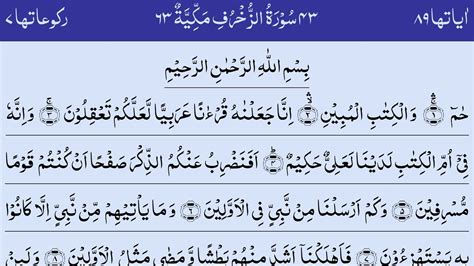 اٰیاتها ۸۹ ۴۳ سُوْرَةُ الزُّخْرُفِ مَكِّيَّةٌ ۶۳ ركوعاتها ۷
بِسْمِ اللهِ الرَّحْمٰنِ الرَّحِيْمِ
حٰمٓ ۝۱ وَ الْكِتٰبِ الْمُبِيْنِ ۝۲ اِنَّا جَعَلْنٰهُ قُرْءٰنًا عَرَبِيًّا لَّعَلَّكُمْ تَعْقِلُوْنَ ۝۳ وَ اِنَّهٗ
فِيْۤ اُمِّ الْكِتٰبِ لَدَيْنَا لَعَلِيٌّ حَكِيْمٌ ۝۴ اَفَنَضْرِبُ عَنْكُمُ الذِّكْرَ صَفْحًا اَنْ كُنْتُمْ قَوْمًا
مُّسْرِفِيْنَ ۝۵ وَ كَمْ اَرْسَلْنَا مِنْ نَّبِيٍّ فِي الْاَوَّلِيْنَ ۝۶ وَ مَا يَاْتِيْهِمْ مِّنْ نَّبِيٍّ اِلَّا كَانُوْا
بِهٖ يَسْتَهْزِءُوْنَ ۝۷ فَاَهْلَكْنَاۤ اَشَدَّ مِنْهُمْ بَطْشًا وَّ مَضٰى مَثَلُ الْاَوَّلِيْنَ ۝۸ وَ لَىِٕنْ